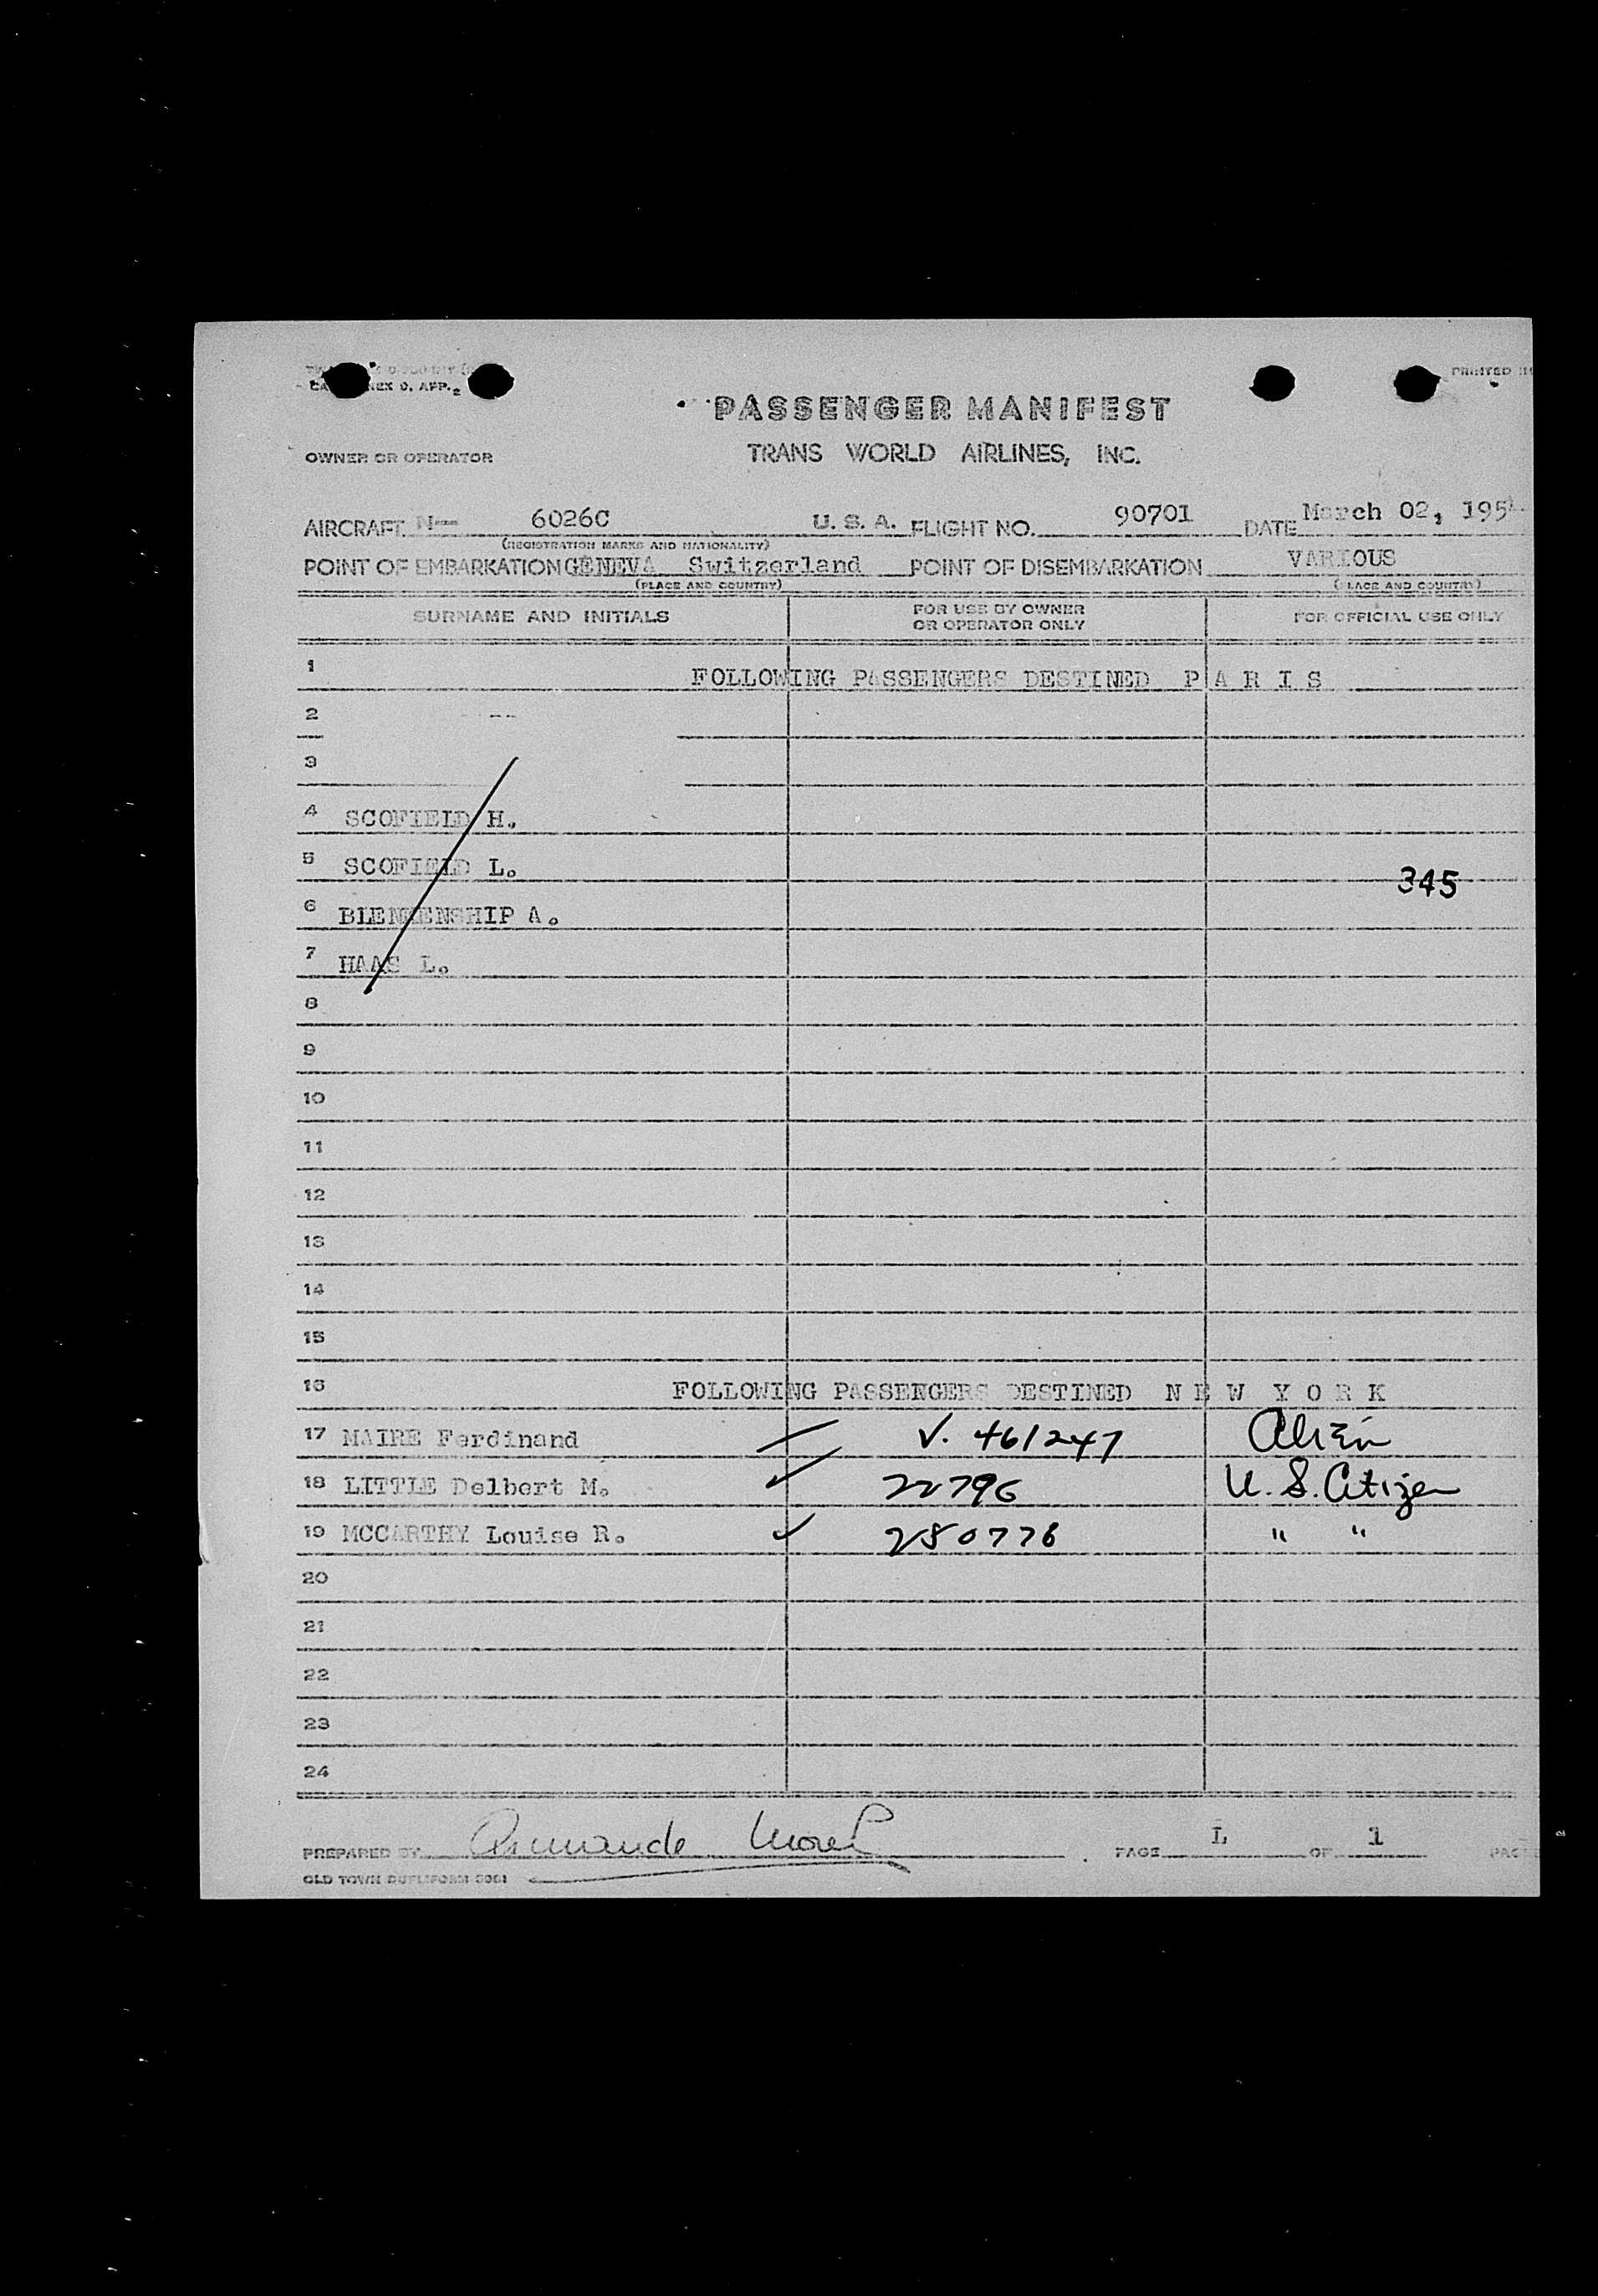 EX O. APP.
PRINTED IN
PASSENGER MANIFEST
OWNER OR OPERATOR TRANS WORLD AIRLINES, INC.
AIRCRAFT N— 6026C U. S. A. FLIGHT NO. 90701 DATE March 02, 195
(REGISTRATION MARKS AND NATIONALITY)
POINT OF EMBARKATION GENEVA Switzerland POINT OF DISEMBARKATION VARIOUS
(PLACE AND COUNTRY) (PLACE AND COUNTRY)
SURNAME AND INITIALS FOR USE BY OWNER OR OPERATOR ONLY FOR OFFICIAL USE ONLY
1 FOLLOWING PASSENGERS DESTINED P A R I S
2 --
3
4 SCOFIEID H.
5 SCOFIEID L.
345
6 A.
7 HAAS L.
8
9
10
11
12
13
14
15
16 FOLLOWING PASSENGERS DESTINED N E W Y O R K
17 MAIRE Ferdinand V. 461247 Alien
18 LITTLE Delbert M. 22796 U. S. Citizen
19 MCCARTHY Louise R. 280776 " "
20
21
22
23
24
PREPARED BY Armande Morel PAGE 1 OF 1
OLD TOWN DUPLIFORM